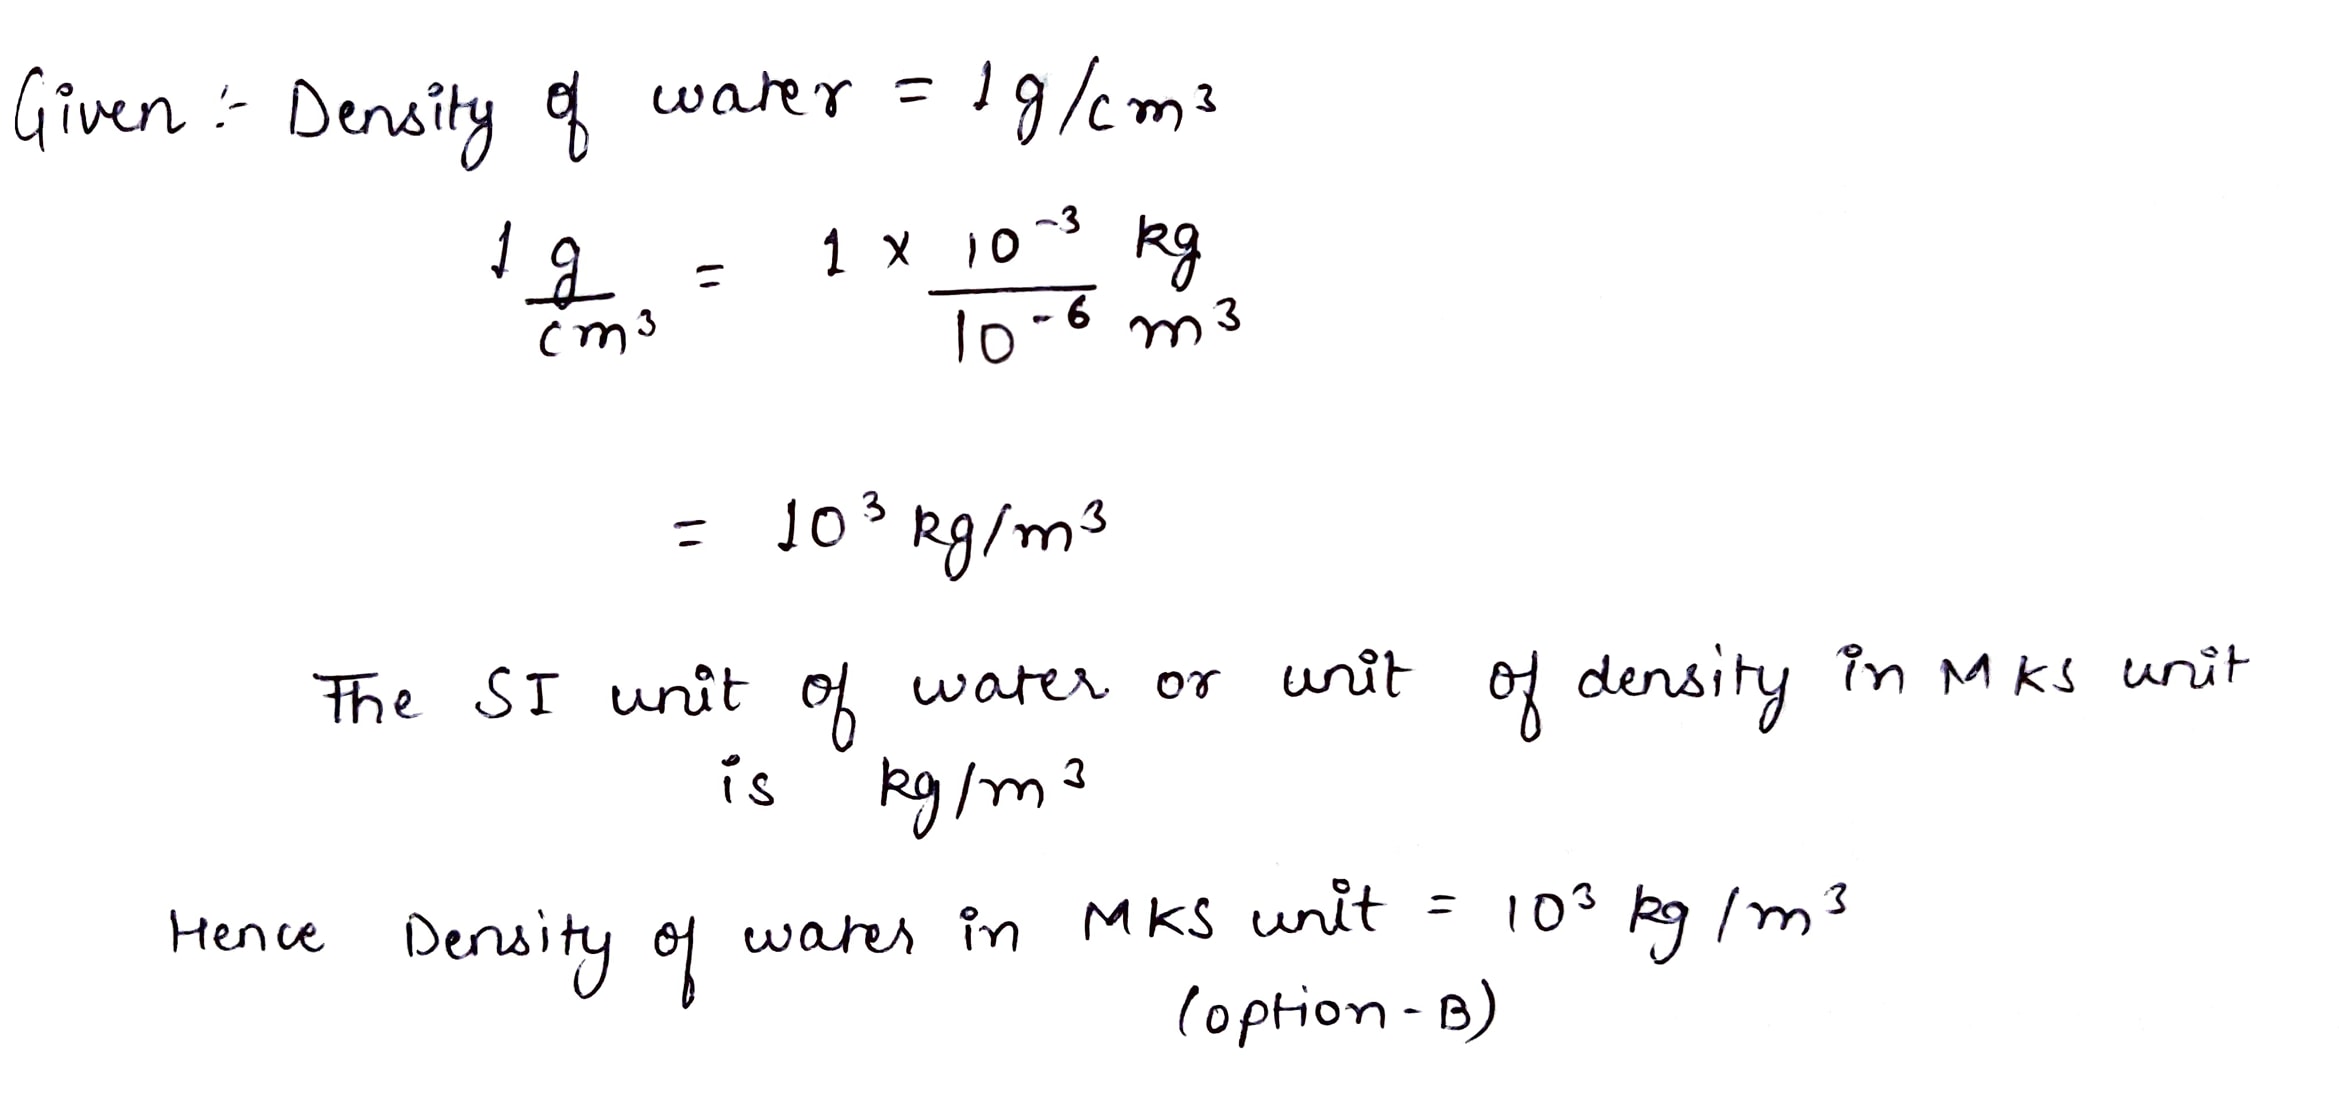 Given :- Density of water = 1g/cm³
1 g/cm³ = 1 × 10⁻³ kg / 10⁻⁶ m³
= 10³ kg/m³
The SI unit of water or unit of density in MKS unit
is kg/m³
Hence Density of water in MKS unit = 10³ kg/m³
(option-B)